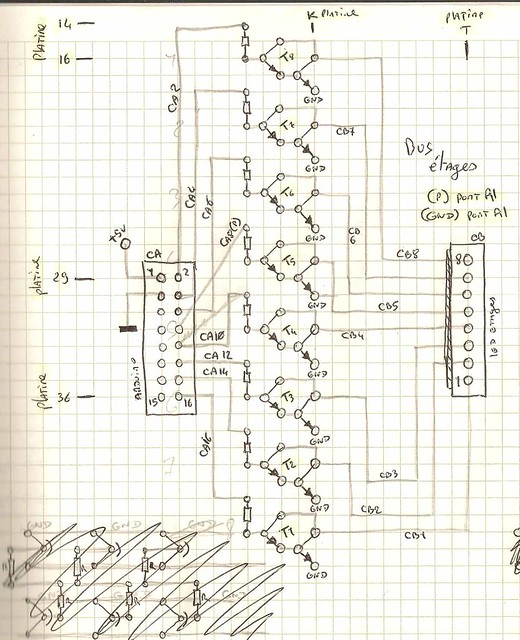 14
K PLATINE
PLATINE
T
PLATINE
16
T8
GND
CA2
T7
CB7
GND
BUS
étages
(P) PONT A1
(GND) PONT A1
CA4
CA6
T6
GND
CB
6
CA8(P)
+5V
CA
CB8
CB
T5
GND
8
PLATINE
29
1
2
CB5
CA10
T4
CB4
GND
CA12
CA14
ARDUINO
1
PLATINE
36
15
16
T3
GND
CA16
T2
CB3
GND
CB2
T1
CB1
GND
GND
GND
GND
R
R
R
R
R